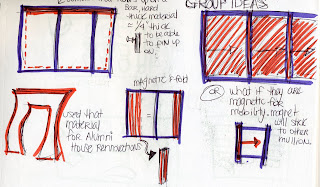 thick material
≈ 1/4" thick
to be able
to pin up
on.
GROUP IDEAS
MAGNETIC
used that
material
for Alumni
House Rennovations
OR what if they are
magnetic for
mobility. magnet
will stick
to other
mullion.